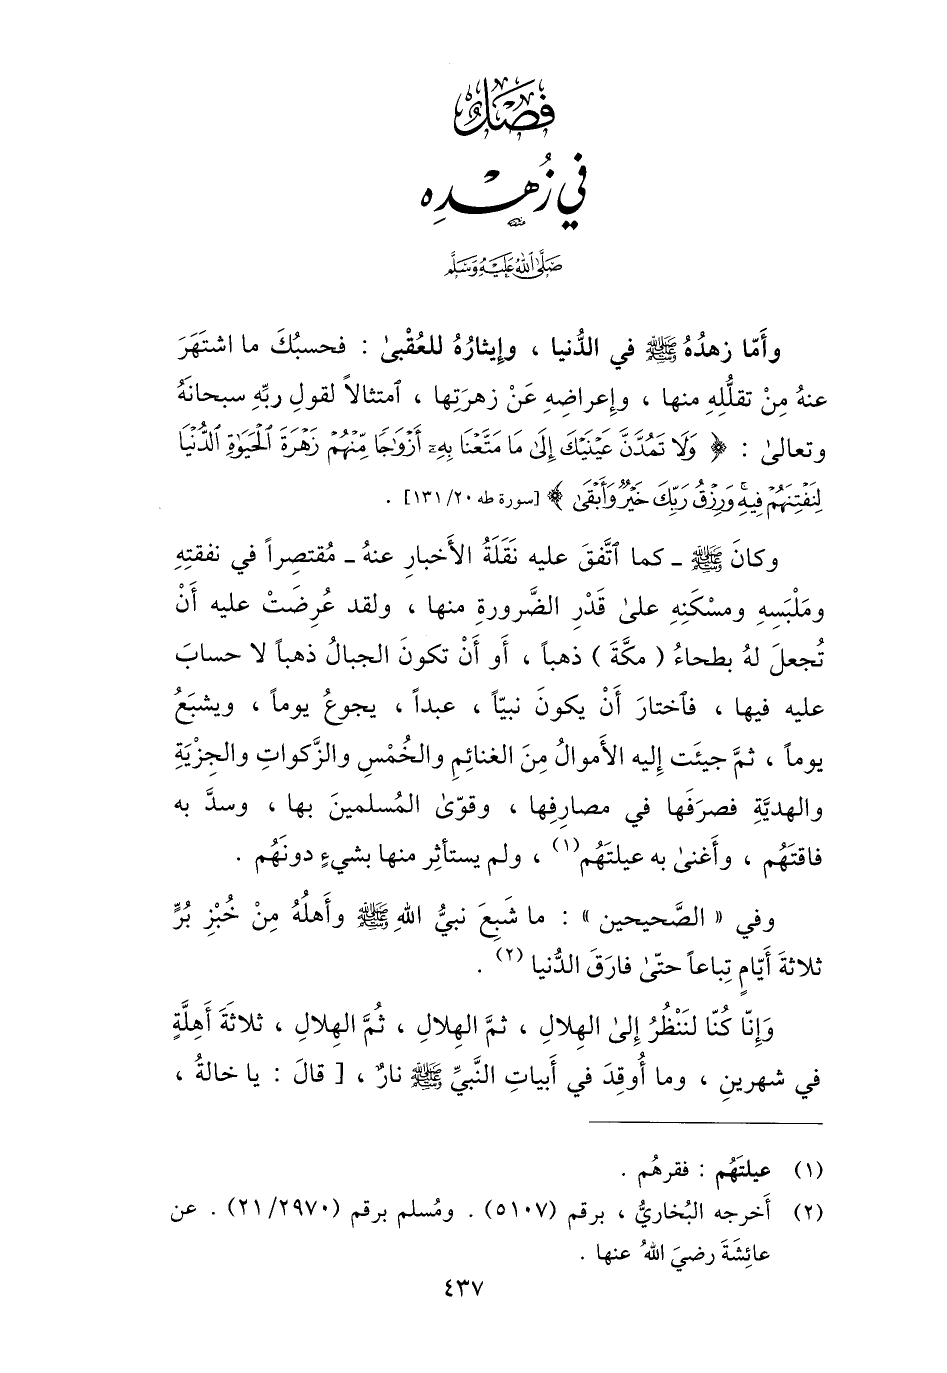 فَصْلٌ
في زُهْدِهِ
صَلَّى اللهُ عَلَيْهِ وَسَلَّم
وأَمّا زهدُهُ ﷺ في الدُّنيا ، وإيثارُهُ للعُقْبىٰ : فحسبُكَ ما اشتهَرَ
عنهُ مِنْ تقلُّلِهِ منها ، وإعراضِهِ عَنْ زهرَتِها ، ٱمتثالاً لقولِ ربِّهِ سبحانَهُ
وتعالىٰ : ﴿ وَلَا تَمُدَّنَّ عَيْنَيْكَ إِلَىٰ مَا مَتَّعْنَا بِهِۦٓ أَزْوَٰجًا مِّنْهُمْ زَهْرَةَ ٱلْحَيَوٰةِ ٱلدُّنْيَا
لِنَفْتِنَهُمْ فِيهِ ۚ وَرِزْقُ رَبِّكَ خَيْرٌ وَأَبْقَىٰ ﴾ [سورة طه ٢٠/ ١٣١] .
وكانَ ﷺ ـ كما ٱتَّفقَ عليه نَقَلَةُ الأَخبارِ عنهُ ـ مُقتصِراً في نفقتِهِ
ومَلْبَسِهِ ومسْكَنِهِ علىٰ قَدْرِ الضَّرورةِ منها ، ولقد عُرِضَتْ عليه أَنْ
تُجعلَ لهُ بطحاءُ ( مكَّةَ ) ذهباً ، أَو أَنْ تكونَ الجبالُ ذهباً لا حسابَ
عليه فيها ، فٱختارَ أَنْ يكونَ نبيّاً ، عبداً ، يجوعُ يوماً ، ويشبَعُ
يوماً ، ثمَّ جيئَت إليه الأَموالُ مِنَ الغنائِمِ والخُمْسِ والزَّكواتِ والجِزْيَةِ
والهديَّةِ فصرَفَها في مصارِفِها ، وقوّىٰ المُسلمينَ بها ، وسدَّ به
فاقتَهُم ، وأَغنىٰ به عيلتَهُم(١) ، ولم يستأثِر منها بشيءٍ دونَهُم .
وفي « الصَّحيحين » : ما شَبِعَ نبيُّ اللهِ ﷺ وأَهلُهُ مِنْ خُبْزِ بُرٍّ
ثلاثةَ أَيّامٍ تِباعاً حتّىٰ فارَقَ الدُّنيا (٢) .
وَإِنّا كُنّا لَنَنْظُرُ إلىٰ الهِلالِ ، ثمَّ الهِلالِ ، ثُمَّ الهِلالِ ، ثلاثةَ أَهِلَّةٍ
في شهرينِ ، وما أُوقِدَ في أَبياتِ النَّبيِّ ﷺ نارٌ ، [ قالَ : يا خالةُ ،
(١) عيلتَهُم : فقرهُم .
(٢) أَخرجه البُخاريُّ ، برقم (٥١٠٧) . ومُسلم برقم (٢٩٧٠/ ٢١) . عن
عائِشَةَ رضيَ اللهُ عنها .
٤٣٧